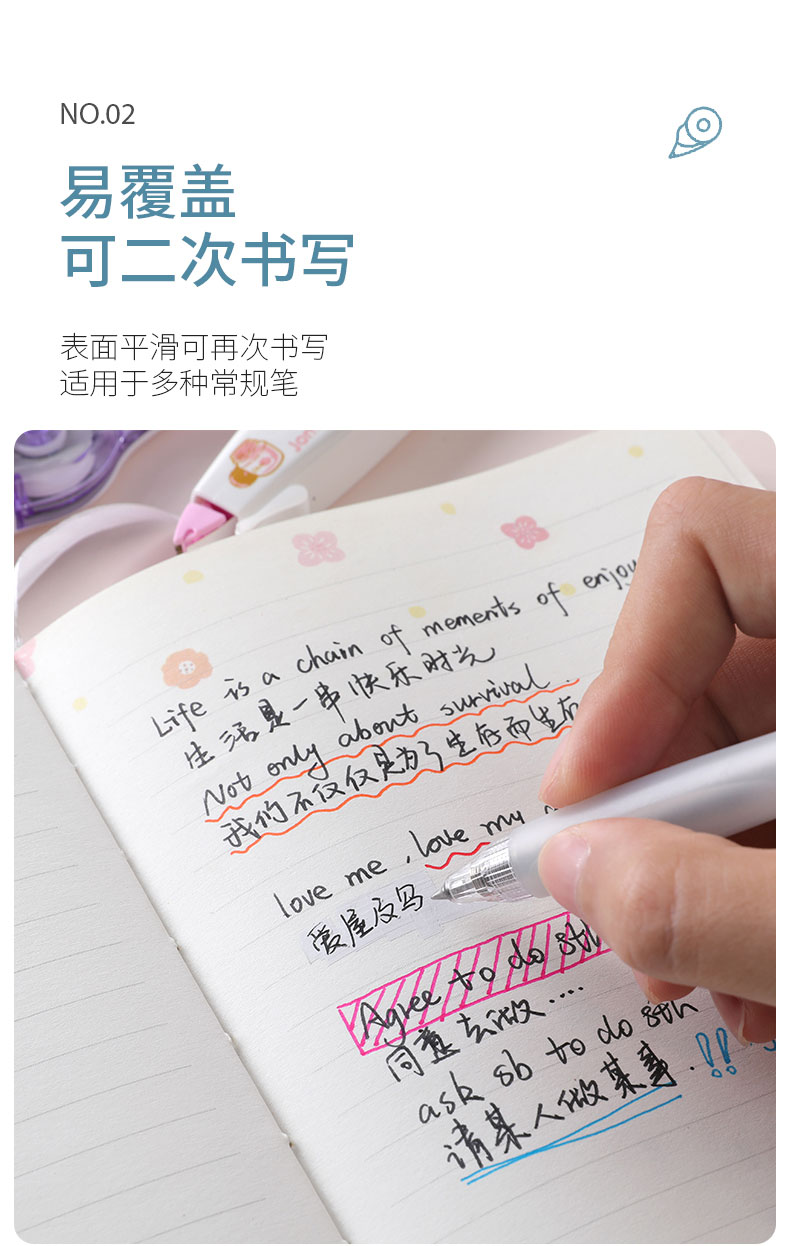 NO.02
易覆盖
可二次书写
表面平滑可再次书写
适用于多种常规笔
Jon
Life is a chain of mements of enjoy
生活是一串快乐时光
Not only about survival.
我们不仅仅是为了生存而生存
love me , love my
爱屋及乌
Agree to do sth
同意去做.....
ask sb to do sth
请某人做某事.!!